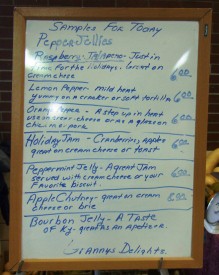 Samples For Today
Pepper Jellies
Raspberry Jalapeno - Just in
time for the holidays. Great on
cream cheese 6.00
Lemon Pepper - mild heat
yummy on a cracker or soft tortilla 6.00
Orange Pepper - A step up in heat
use on cream cheese or as a glaze on
chicken or pork 6.00
Holiday Jam - Cranberries, apples
great on cream cheese or toast 6.00
Peppermint Jelly - A great Jam
served with cream cheese or your
Favorite biscuit. 6.00
Apple Chutney - great on cream
cheese or brie 8.00
Bourbon Jelly - A Taste
of Ky - great as an
Granny's Delights